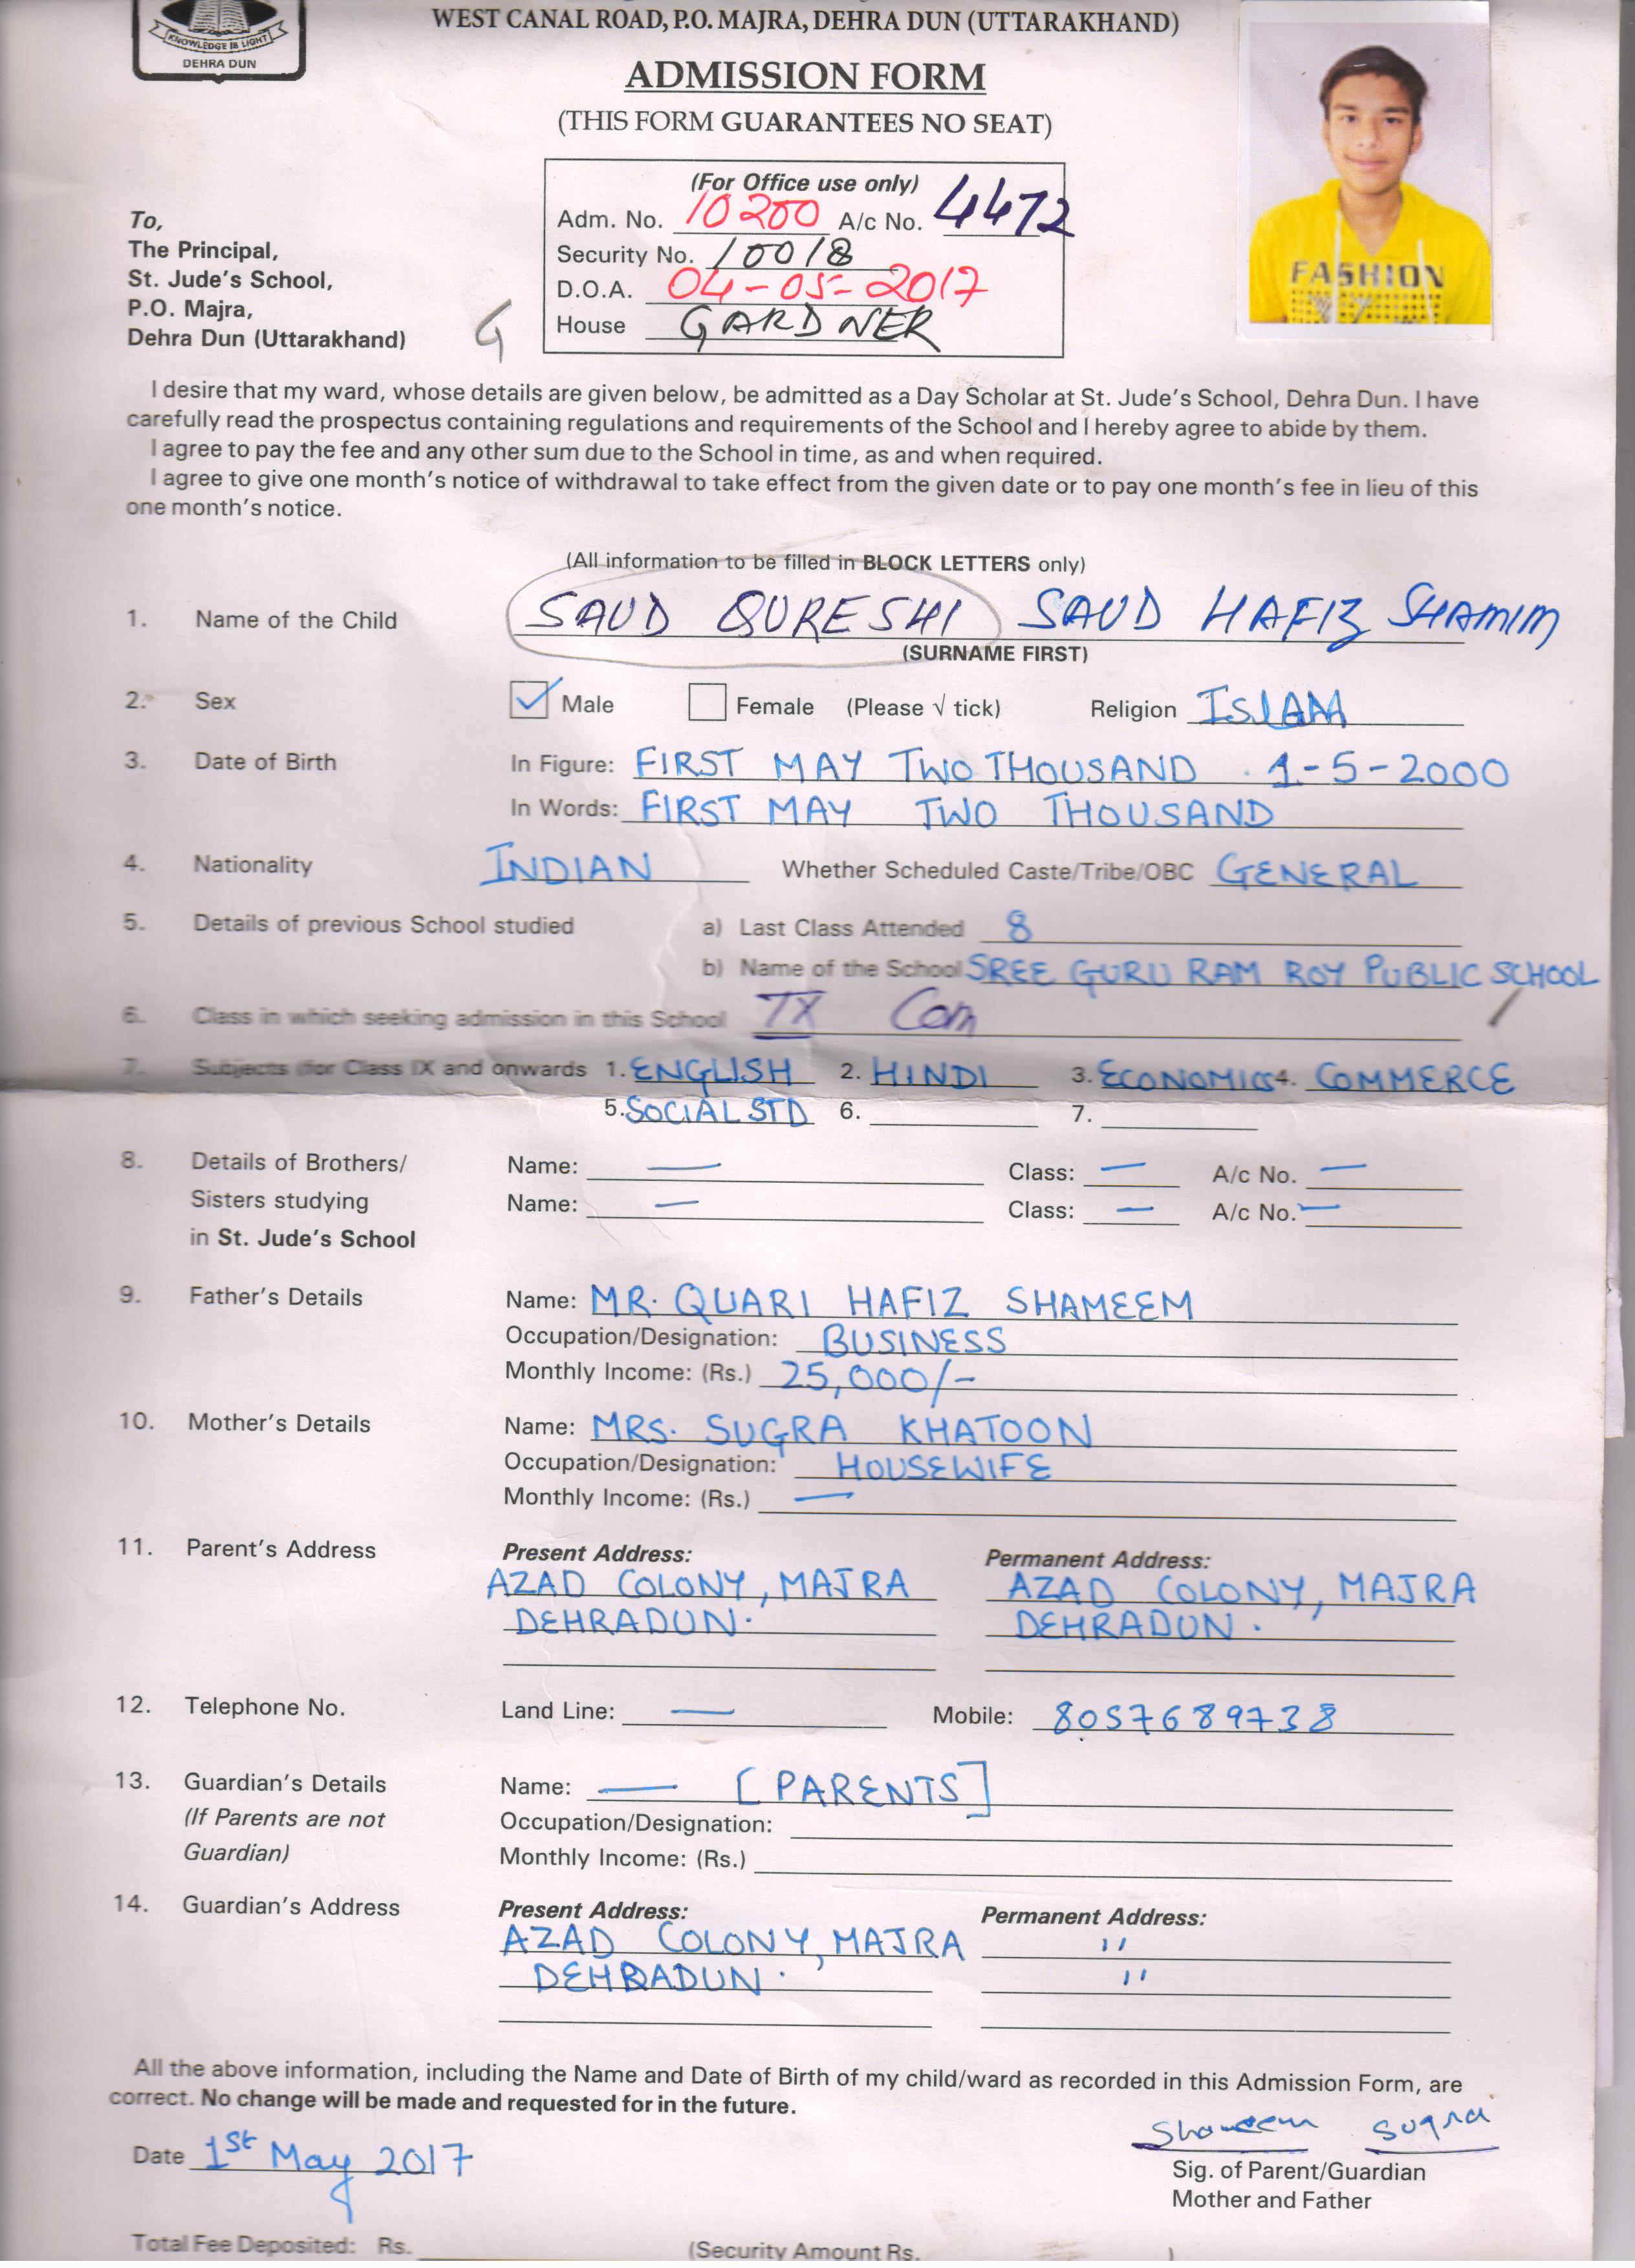 KNOWLEDGE IS LIGHT
DEHRA DUN
WEST CANAL ROAD, P.O. MAJRA, DEHRA DUN (UTTARAKHAND)
ADMISSION FORM
(THIS FORM GUARANTEES NO SEAT)
(For Office use only)
Adm. No. 10200 A/c No. 4472
Security No. 10018
D.O.A. 04-05-2017
House GARDNER
To,
The Principal,
St. Jude's School,
P.O. Majra,
Dehra Dun (Uttarakhand)
G
FASHION
I desire that my ward, whose details are given below, be admitted as a Day Scholar at St. Jude's School, Dehra Dun. I have
carefully read the prospectus containing regulations and requirements of the School and I hereby agree to abide by them.
I agree to pay the fee and any other sum due to the School in time, as and when required.
I agree to give one month's notice of withdrawal to take effect from the given date or to pay one month's fee in lieu of this
one month's notice.
(All information to be filled in BLOCK LETTERS only)
1. Name of the Child SAUD QURESHI SAUD HAFIZ SHAMIM
(SURNAME FIRST)
2. Sex Male Female (Please √ tick) Religion ISLAM
3. Date of Birth In Figure: FIRST MAY TWO THOUSAND 1-5-2000
In Words: FIRST MAY TWO THOUSAND
4. Nationality INDIAN Whether Scheduled Caste/Tribe/OBC GENERAL
5. Details of previous School studied a) Last Class Attended 8
b) Name of the School SREE GURU RAM ROY PUBLIC SCHOOL
6. Class in which seeking admission in this School IX Com
7. Subjects (for Class IX and onwards 1. ENGLISH 2. HINDI 3. ECONOMICS 4. COMMERCE
5. SOCIAL STD 6. 7.
8. Details of Brothers/ Name: — Class: — A/c No. —
Sisters studying Name: — Class: — A/c No. —
in St. Jude's School
9. Father's Details Name: MR. QUARI HAFIZ SHAMEEM
Occupation/Designation: BUSINESS
Monthly Income: (Rs.) 25,000/-
10. Mother's Details Name: MRS. SUGRA KHATOON
Occupation/Designation: HOUSEWIFE
Monthly Income: (Rs.) —
11. Parent's Address Present Address: Permanent Address:
AZAD COLONY, MAJRA AZAD COLONY, MAJRA
DEHRADUN. DEHRADUN.
12. Telephone No. Land Line: — Mobile: 8057689738
13. Guardian's Details Name: — [PARENTS]
(If Parents are not Occupation/Designation:
Guardian) Monthly Income: (Rs.)
14. Guardian's Address Present Address: Permanent Address:
AZAD COLONY, MAJRA "
DEHRADUN. "
All the above information, including the Name and Date of Birth of my child/ward as recorded in this Admission Form, are
correct. No change will be made and requested for in the future.
Shameem Sugra
Date 1st May 2017
Sig. of Parent/Guardian
Mother and Father
Total Fee Deposited: Rs. (Security Amount Rs. )